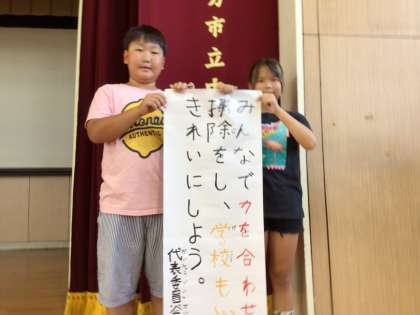 方市立
みんなで力を合わせ
掃除をし、学校も
きれいにしよう。
代表委員会
AUTHENTIC